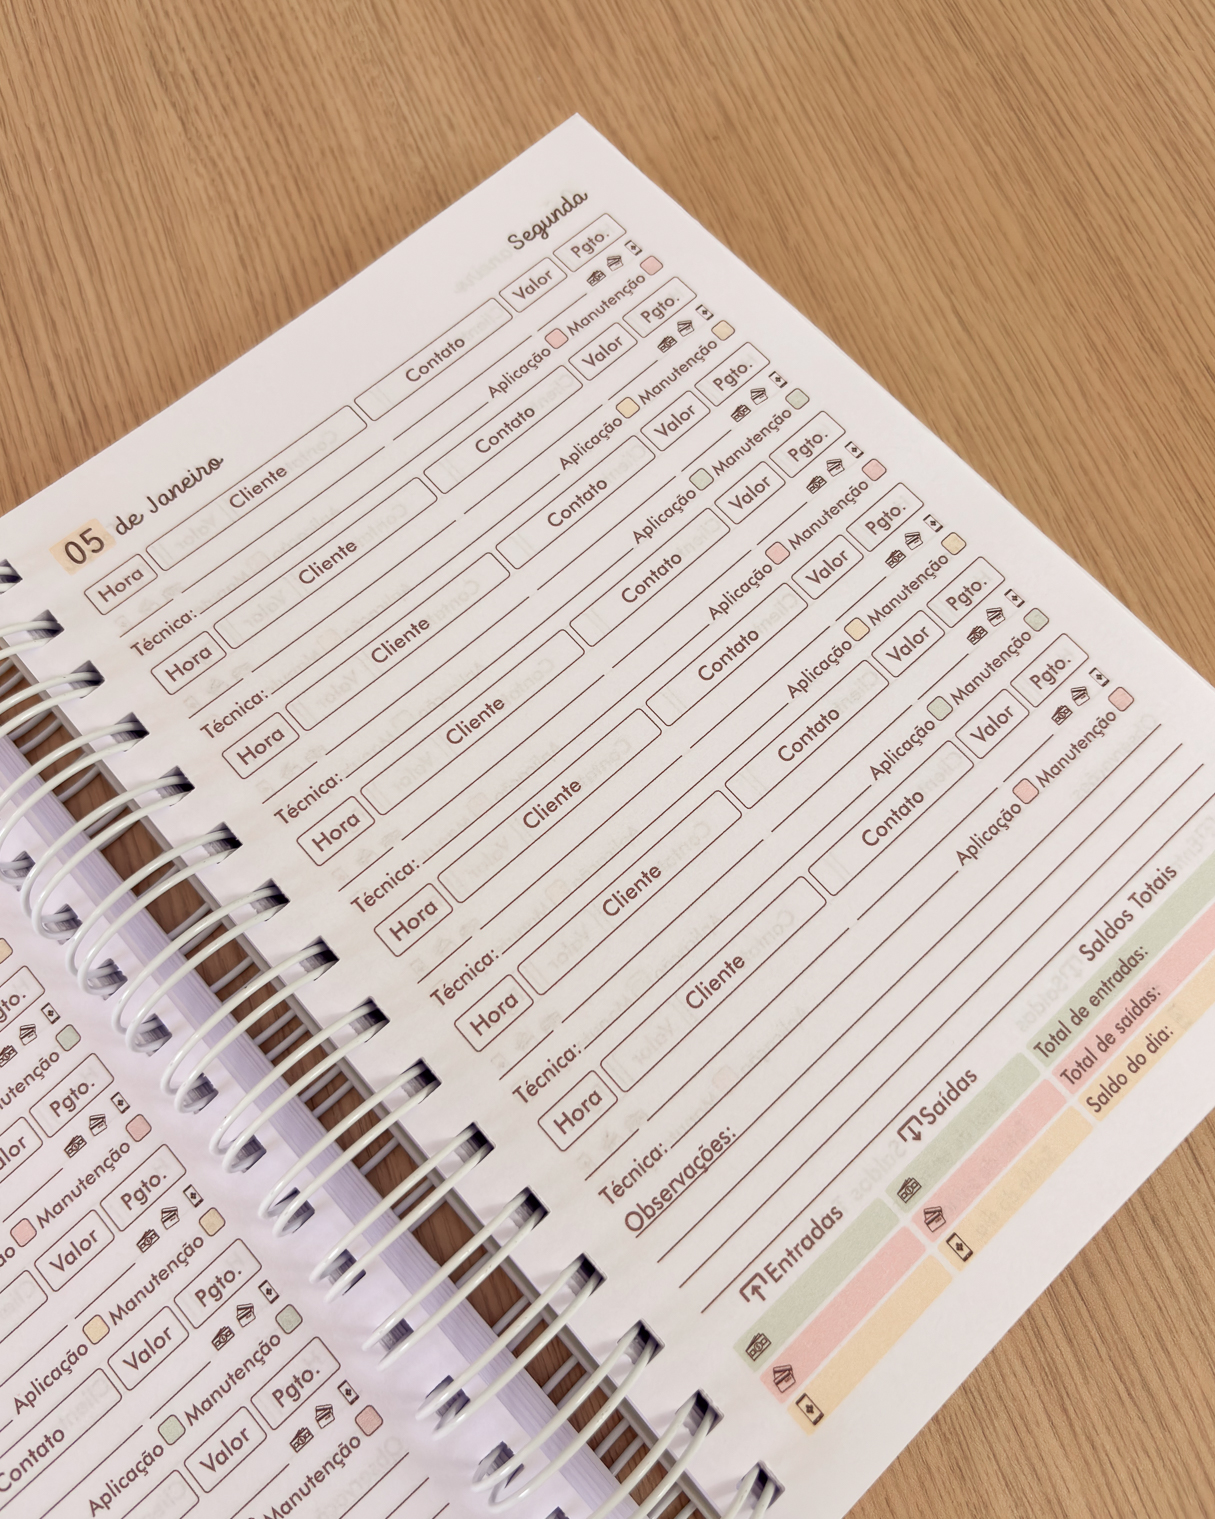 Pgto.
Manutenção
Valor Pgto.
Aplicação Manutenção
Contato Valor Pgto.
Aplicação Manutenção
Valor Pgto.
Manutenção
05 de Janeiro Segunda
Hora Cliente Contato Valor Pgto.
Técnica: Aplicação Manutenção
Hora Cliente Contato Valor Pgto.
Técnica: Aplicação Manutenção
Hora Cliente Contato Valor Pgto.
Técnica: Aplicação Manutenção
Hora Cliente Contato Valor Pgto.
Técnica: Aplicação Manutenção
Hora Cliente Contato Valor Pgto.
Técnica: Aplicação Manutenção
Hora Cliente Contato Valor Pgto.
Técnica: Aplicação Manutenção
Hora Cliente Contato Valor Pgto.
Técnica: Aplicação Manutenção
Observações:
Entradas Saídas Saldos Totais
Total de entradas:
Total de saídas:
Saldo do dia: